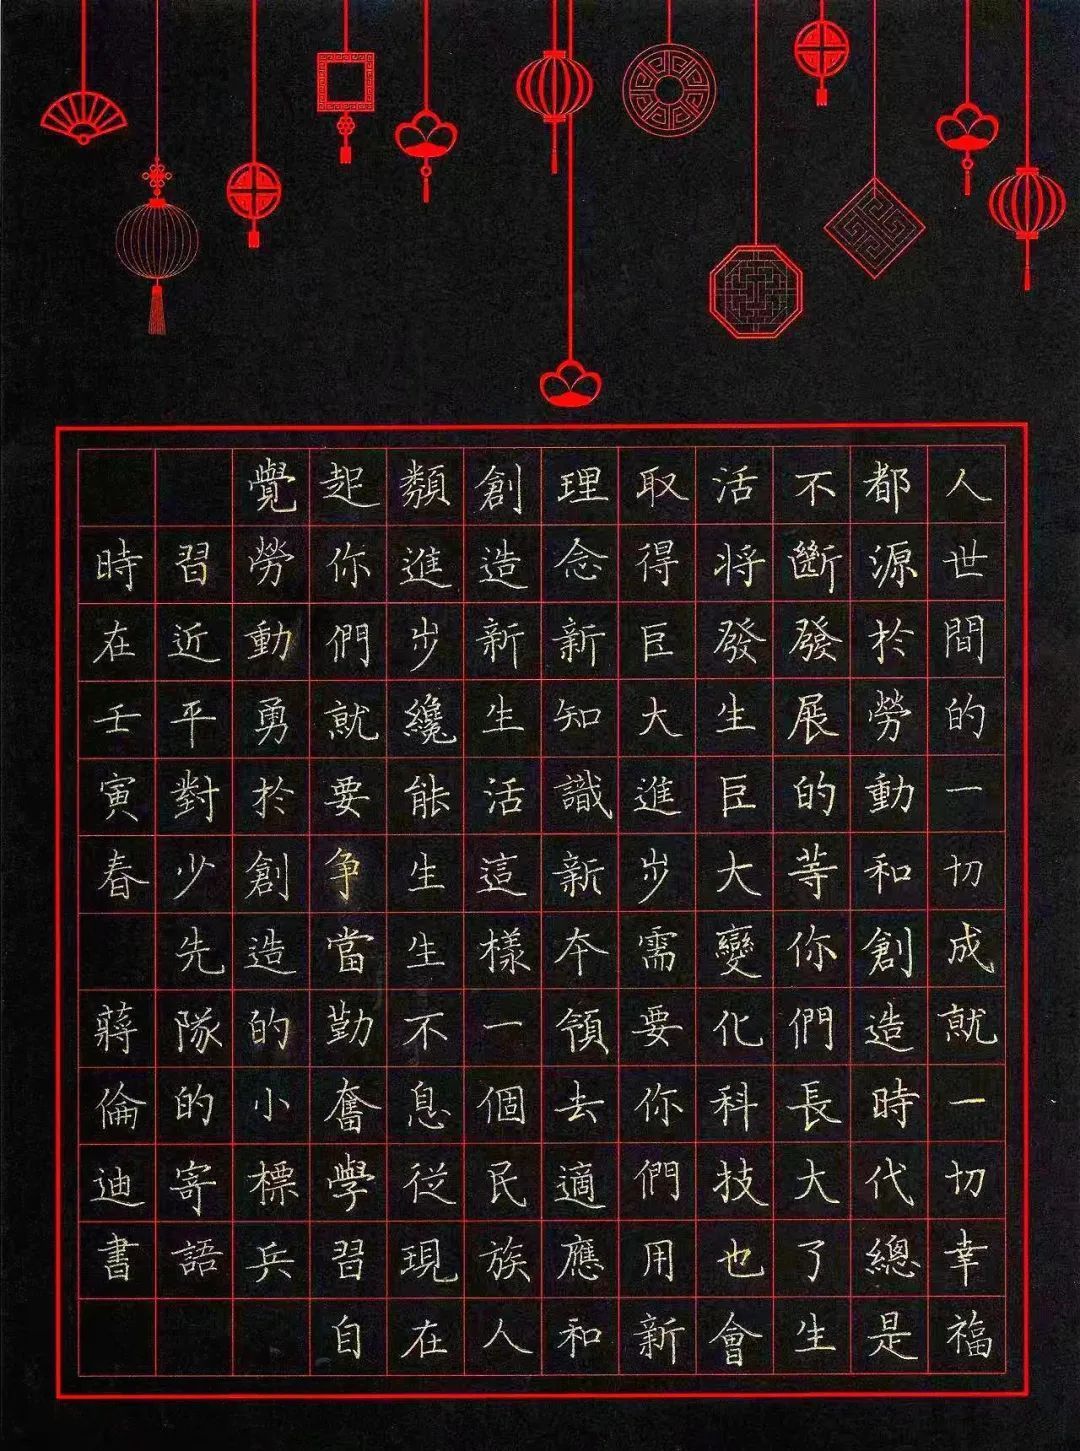 人世間的一切成就一切幸福
都源於勞動和創造時代總是
不斷發展的等你們長大了生
活將發生巨大變化科技也會
取得巨大進步需要你們用新
理念新知識新夲領去適應和
創造新生活這樣一個民族人
類進步纔能生生不息從現在
起你們就要争當勤奮學習自
覺勞動勇於創造的小標兵
習近平對少先隊的寄語
時在壬寅春 蔣倫迪書